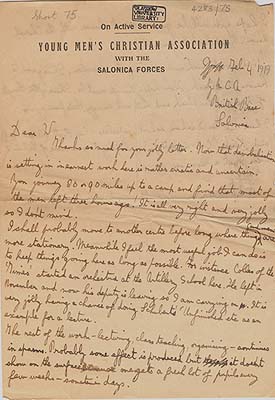 Short 75
GLASGOW
UNIVERSITY
LIBRARY
4283/75
On Active Service
YOUNG MEN'S CHRISTIAN ASSOCIATION
WITH THE
SALONICA FORCES
Feb 4 1919
Y.M.C.A
British Base
Salonica
Dear V
Thanks so much for your jolly letter. Now that demobilisation
is setting in in earnest work here is rather erratic and uncertain.
You journey 80 or 90 miles up to a camp and find that most of
the men left three hours ago! It is all very right and very jolly
so I don't mind.
I shall probably move to another centre before long where things are
more stationary. Meanwhile I feel the most useful job I can do is
to keep things going here as long as possible. For instance Colles of the
'Times' started an orchestra at the Artillery School here. He left in
November and now his deputy is leaving so I am carrying on. It is
very jolly having a chance of doing Schubert's 'Unfinished' etc as an
example for a lecture.
The rest of the work - lecturing, class teaching, organising - continues
in spasms. Probably some effect is produced but it doesn't
show on the surface. One gets a fresh lot of pupils every
few weeks - sometimes days.